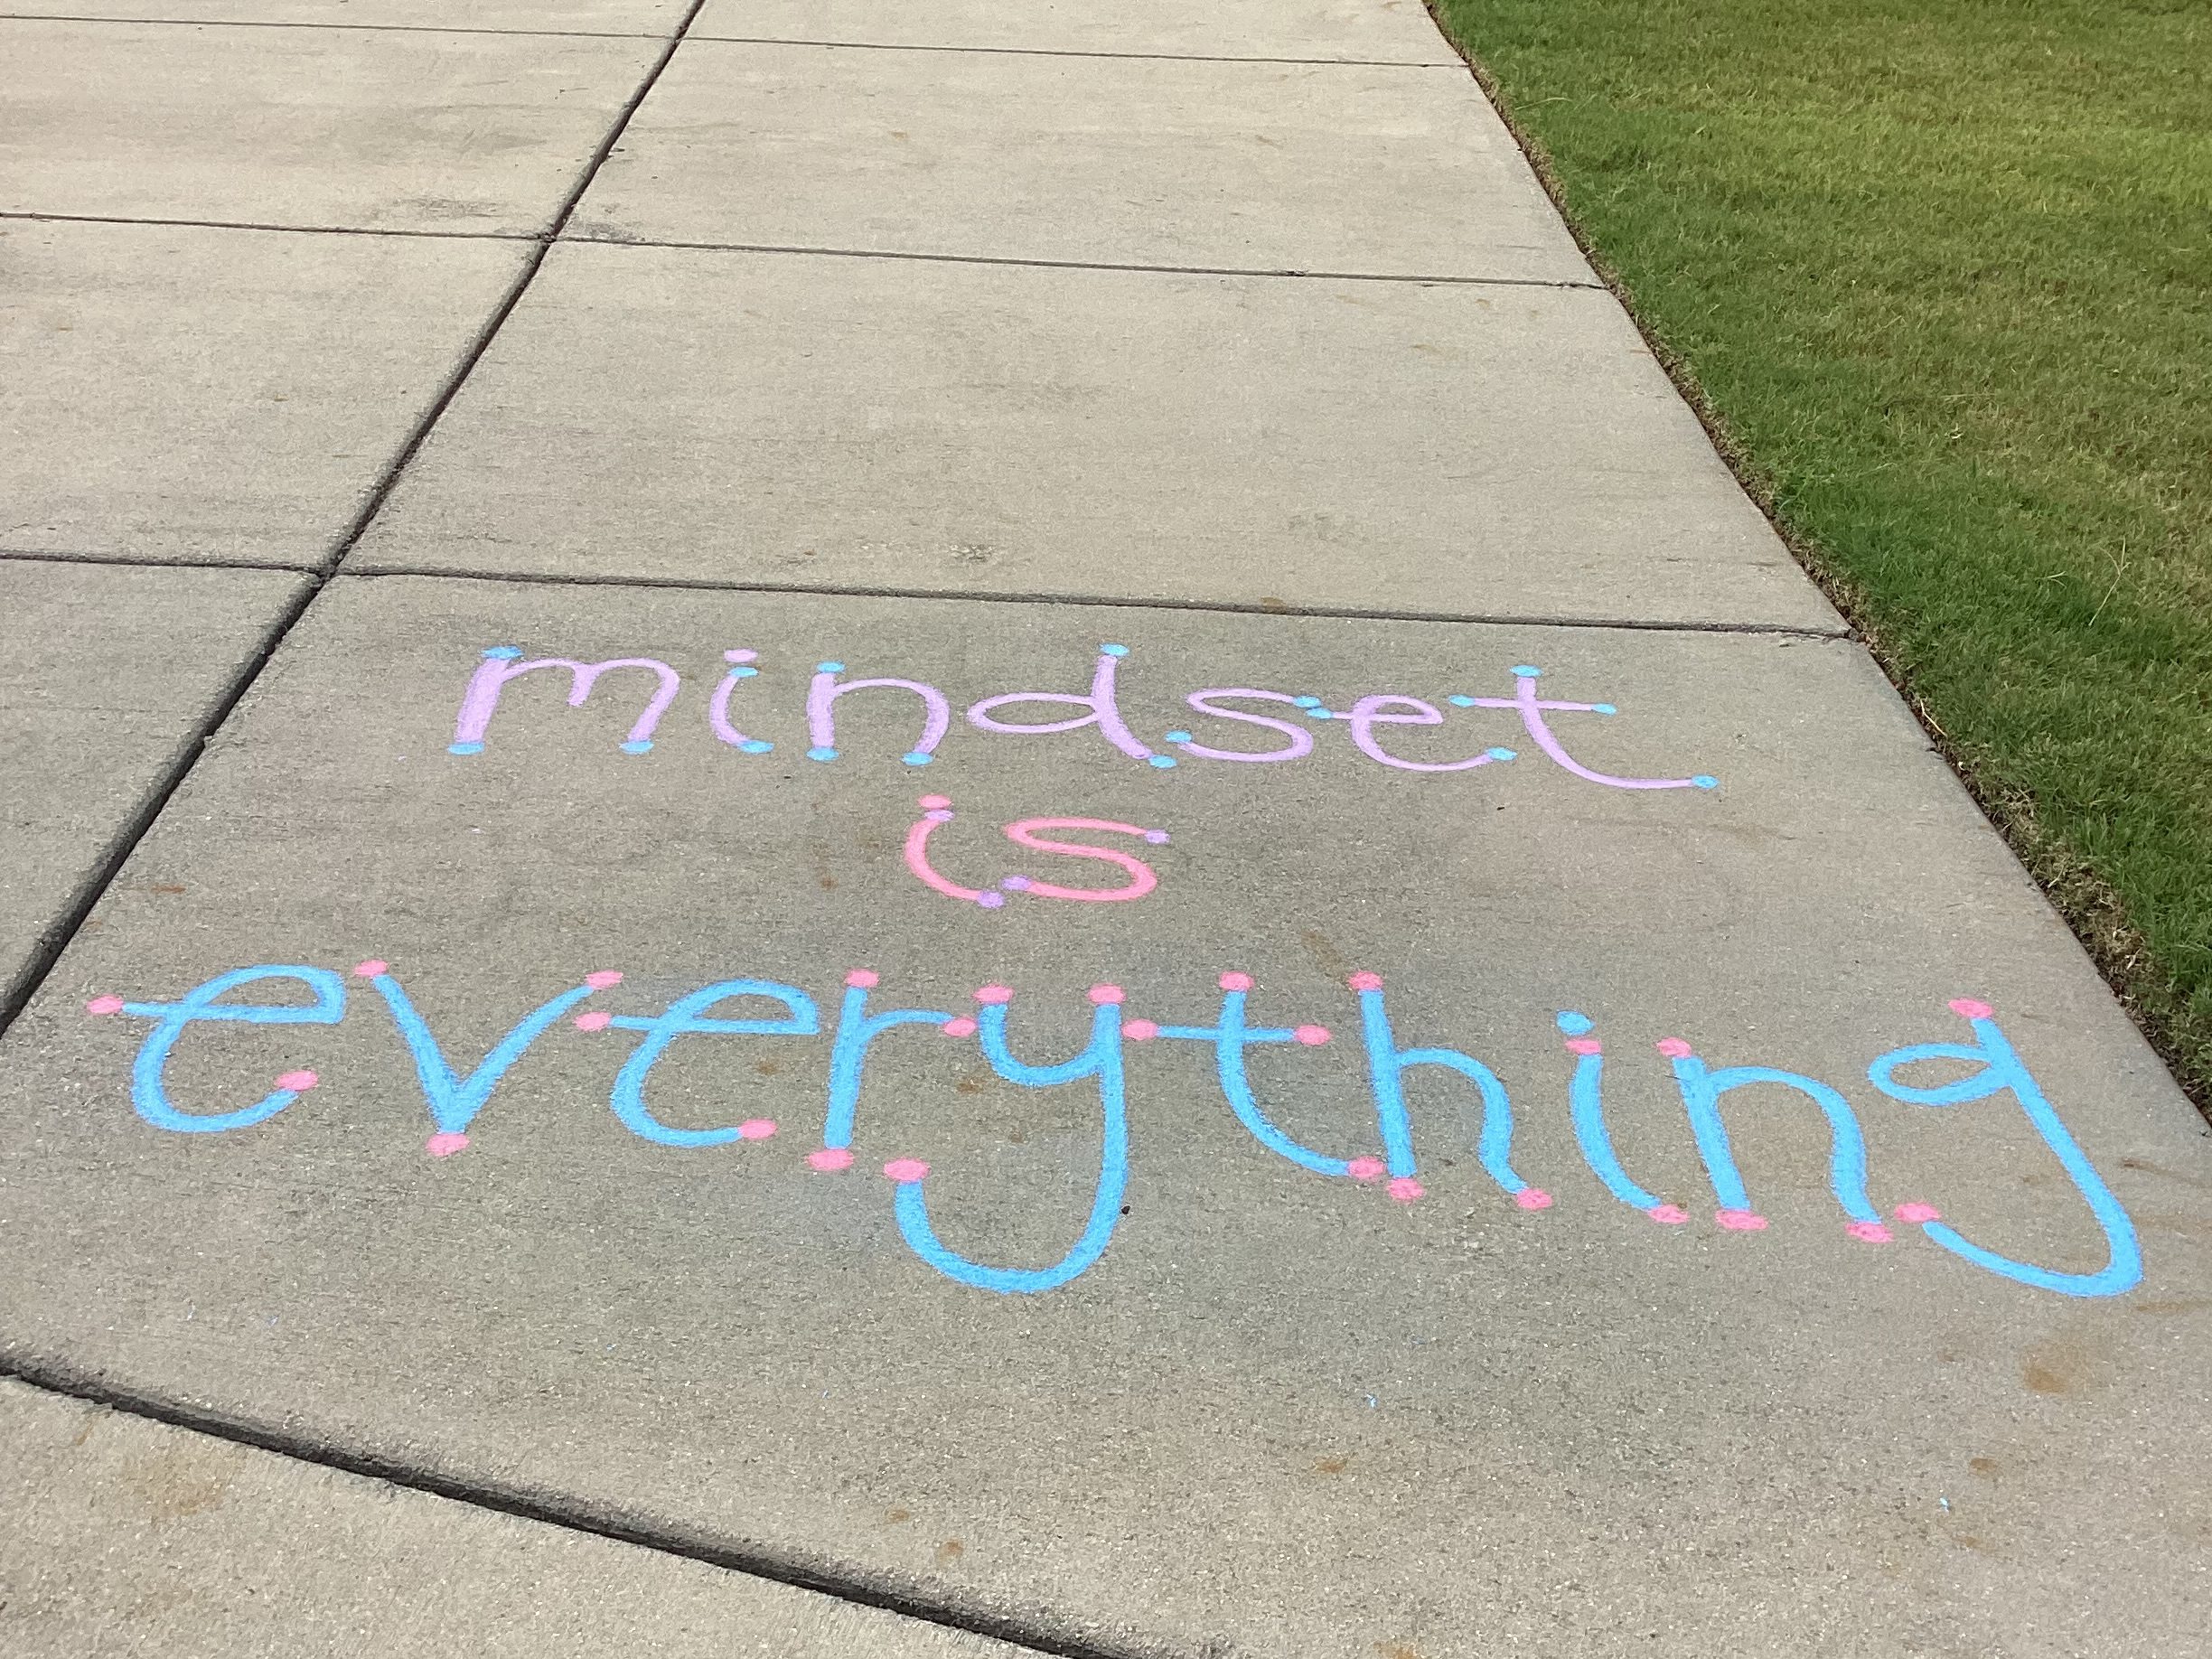 mindset
is
everything